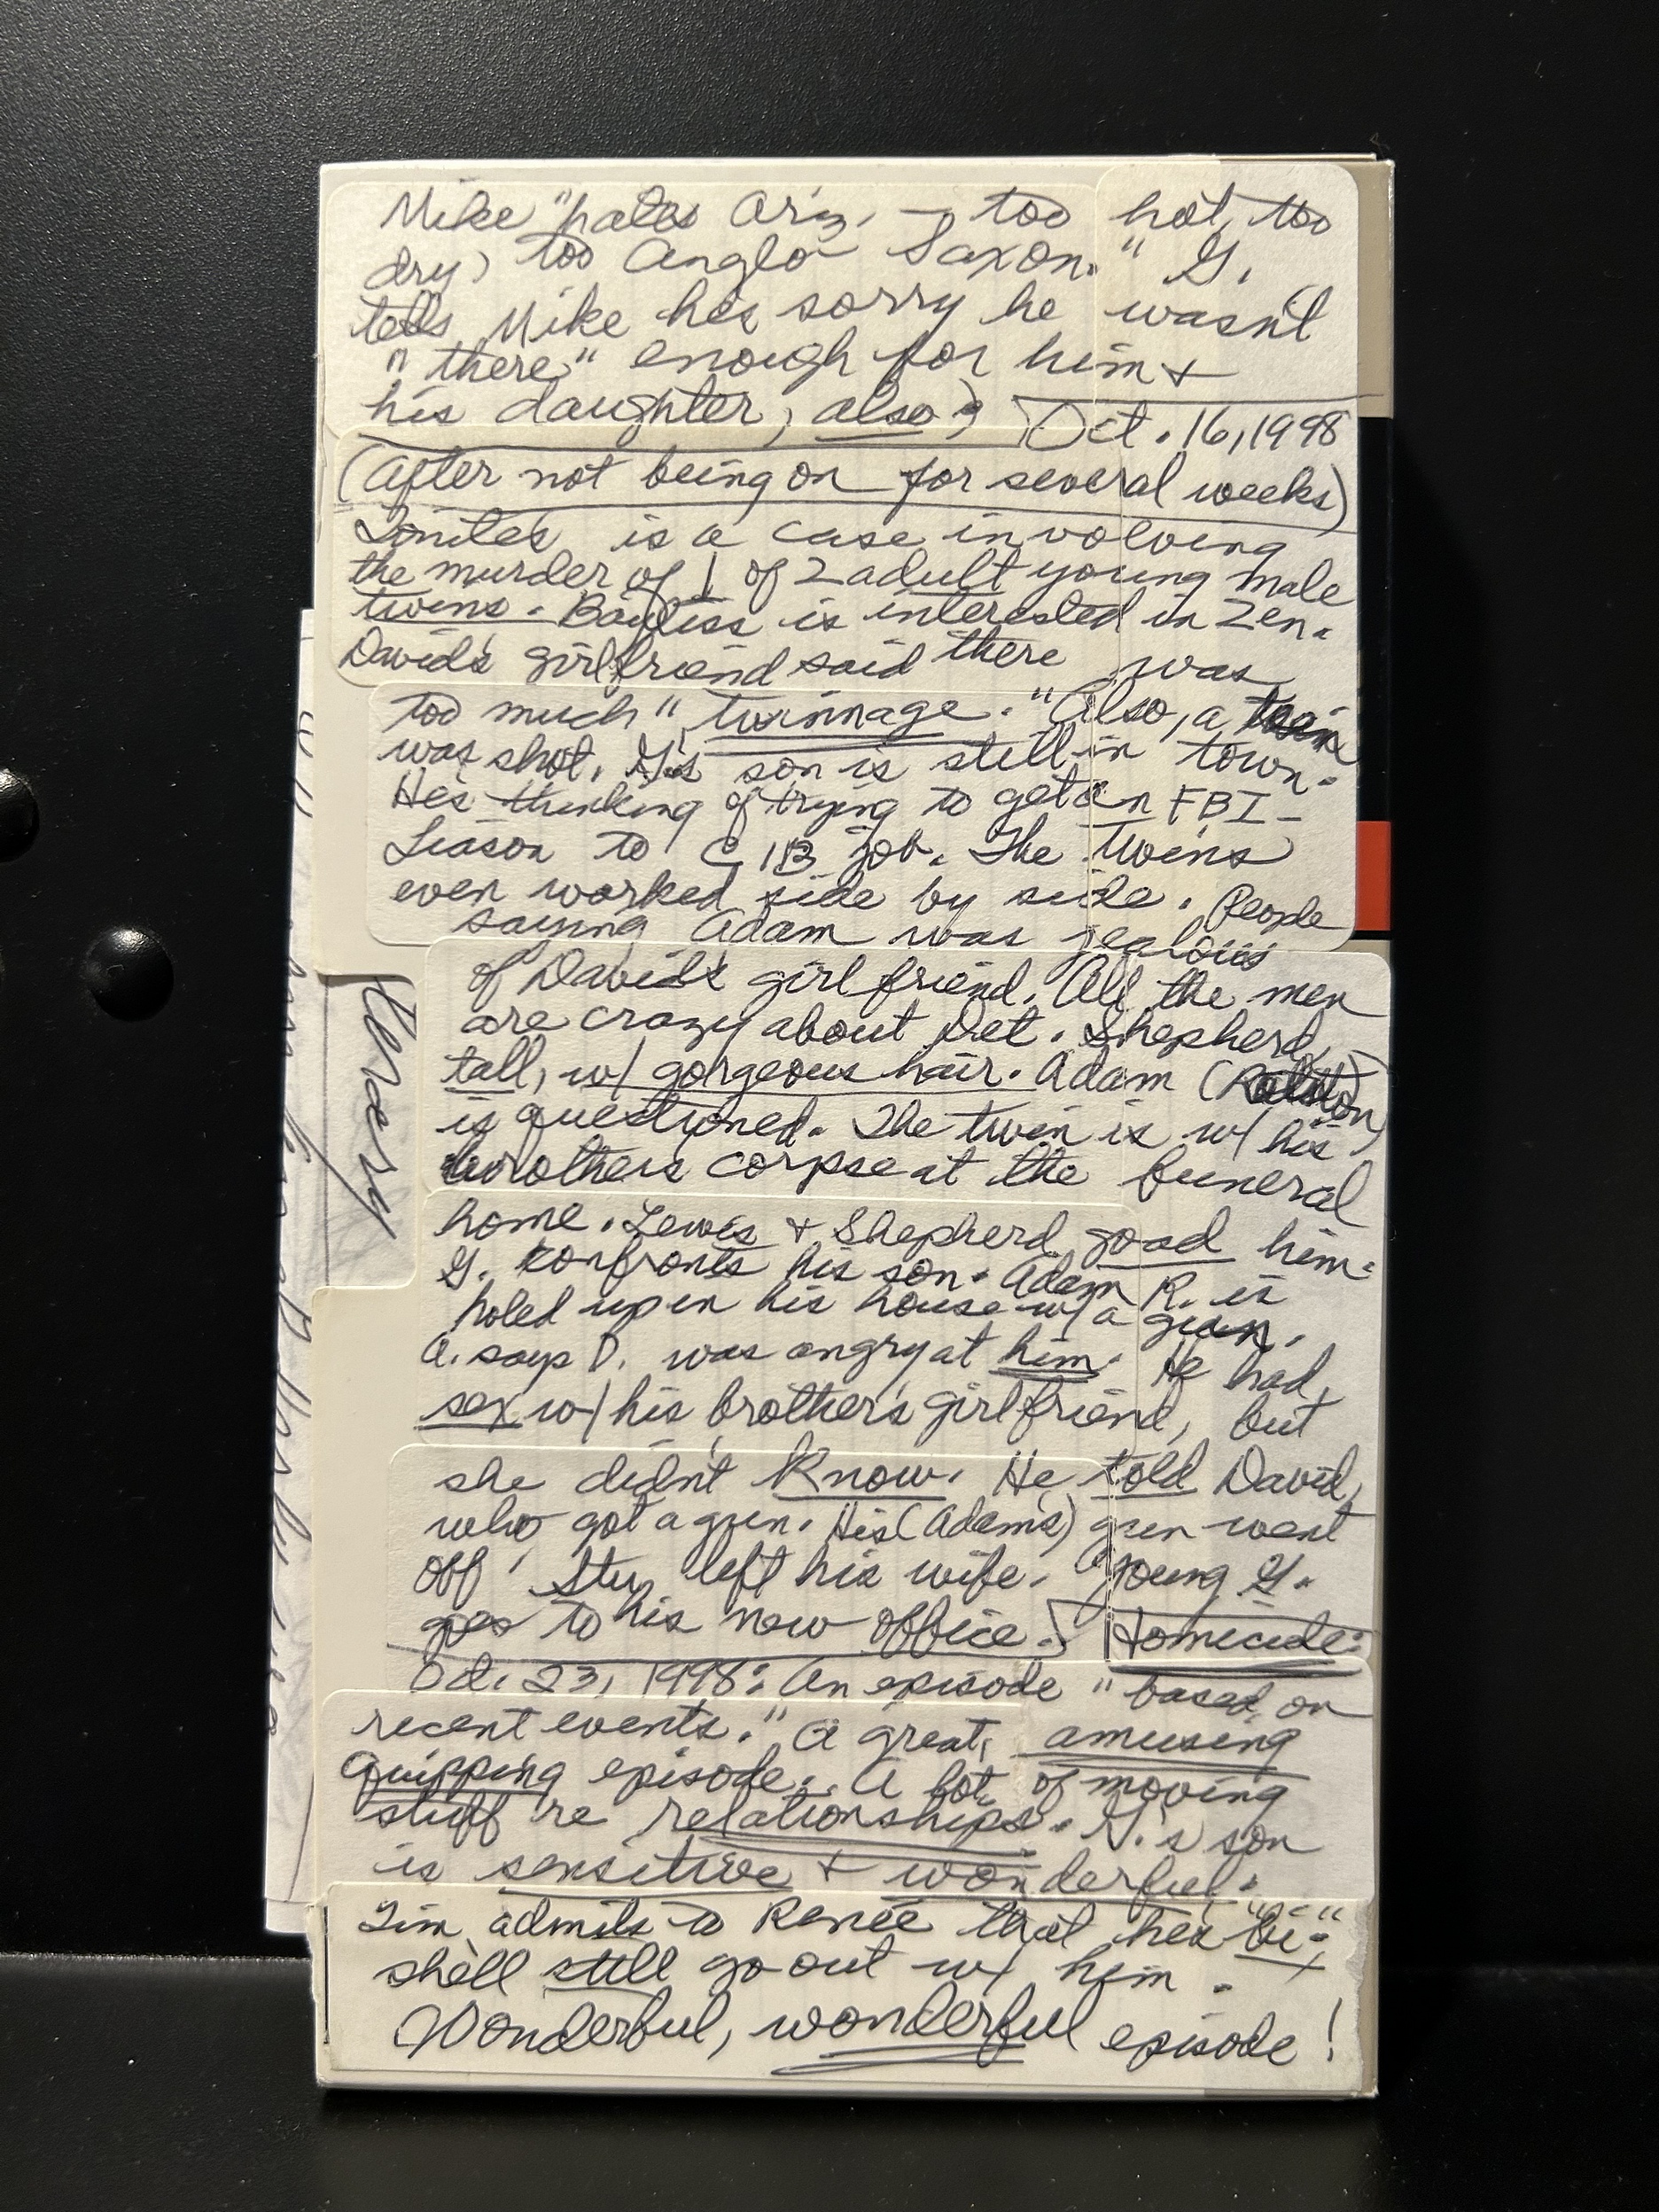 Mike "hates Ariz. — too hot, too
dry, too Anglo-Saxon." G.
tells Mike he's sorry he wasn't
"there" enough for him +
his daughter, also.
Oct. 16, 1998
(After not being on for several weeks)
Tonite's is a case involving
the murder of 1 of 2 adult young male
twins. Bayliss is interested in Zen.
David's girlfriend said there was
too much "twinnage." Also, a twin
was shot. G.'s son is still in town.
He's thinking of trying to get an FBI-
Liason to CIB job. The twins
even worked side by side. People
saying Adam was jealous
of David's girlfriend. All the men
are crazy about Det. Shepherd,
tall, w/ gorgeous hair. Adam
is questioned. The twin is w/ his
brother's corpse at the funeral
home. Lewis + Shepherd goad him.
G. confronts his son. Adam R. is
holed up in his house w/ a gun.
A. says D. was angry at him. He had
sex w/ his brother's girlfriend, but
she didn't know. He told David,
who got a gun. His (Adam's) gun went
off. Stu left his wife. Young G.
goes to his new office.
Homicide:
Oct. 23, 1998: An episode "based on
recent events." A great, amusing
quipping episode. A lot of moving
stuff re relationships. G.'s son
is sensitive + wonderful.
Tim admits to Renée that he's "bi."
she'll still go out w/ him.
Wonderful, wonderful episode!